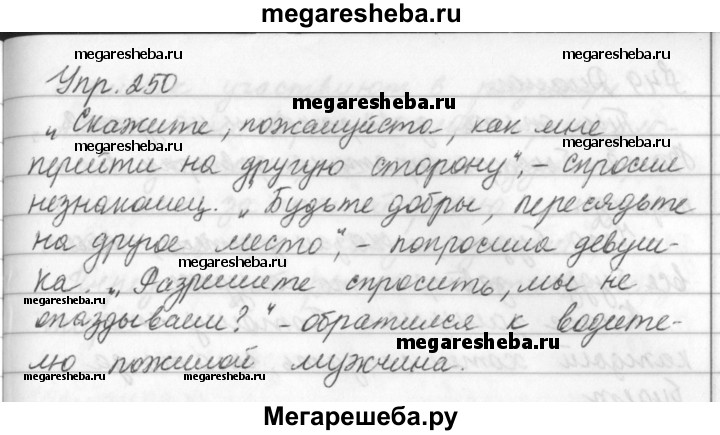 megaresheba.ru
megaresheba.ru
megaresheba.ru
Упр. 250
megaresheba.ru
„Скажите, пожалуйста, как мне
megaresheba.ru
перейти на другую сторону“, – спросил
незнакомец. „Будьте добры, пересядьте
на другое место“, – попросила девуш-
megaresheba.ru
ка. „Разрешите спросить, мы не
megaresheba.ru
опаздываем?“ – обратился к водите-
megaresheba.ru
лю пожилой мужчина.
megaresheba.ru
megaresheba.ru
Мегарешеба.ру